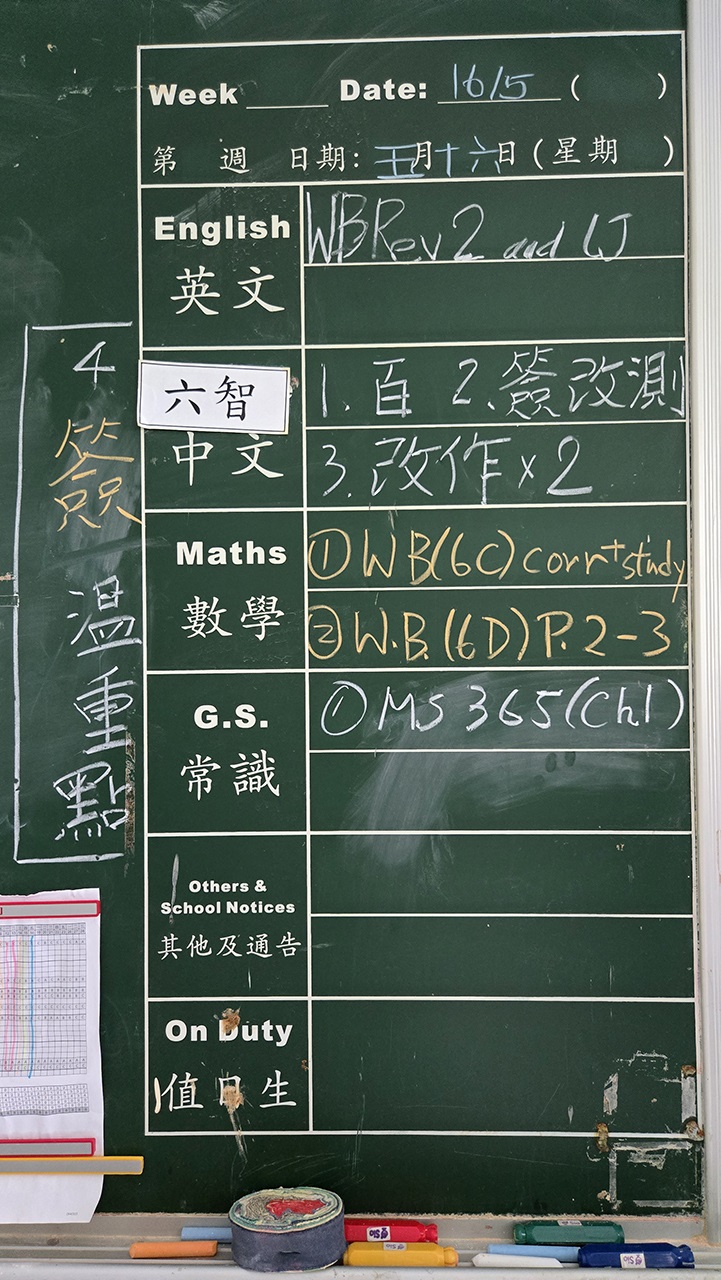 Week ____ Date: 16/5 ( )
第 週 日期: 五月十六日 (星期 )
English
英文
WB Rev 2 and LJ
六智
中文
1. 百 2. 簽改測
3. 改作 x 2
Maths
數學
① WB(6C) corr+study
② W.B. (6D) P. 2-3
G.S.
常識
① MS 365 (Ch1)
Others &
School Notices
其他及通告
On Duty
值日生
4
簽
溫
重
點